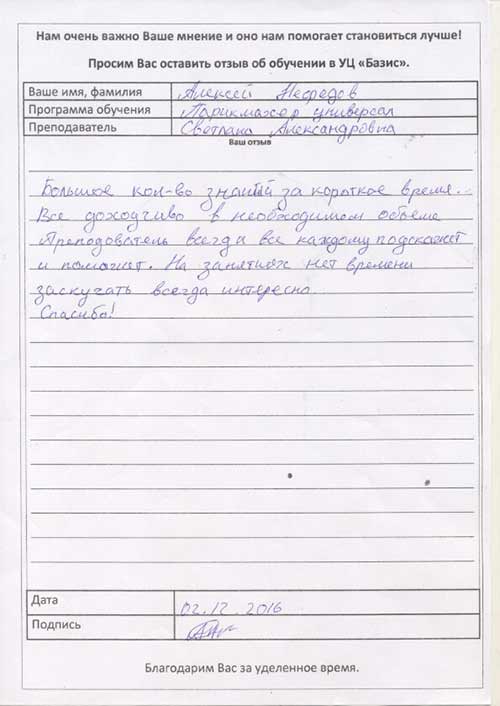 Нам очень важно Ваше мнение и оно нам помогает становиться лучше!
Просим Вас оставить отзыв об обучении в УЦ «Базис».
Ваше имя, фамилия Алексей Нефедов
Программа обучения Парикмахер универсал
Преподаватель Светлана Александровна
Ваш отзыв
Большое кол-во знаний за короткое время.
Все доходчиво в необходимом объеме
Преподователь всегда все каждому подскажет
и поможет. На занятиях нет времени
заскучать всегда интересно
Спасибо!
Дата 02.12.2016
Подпись
Благодарим Вас за уделенное время.